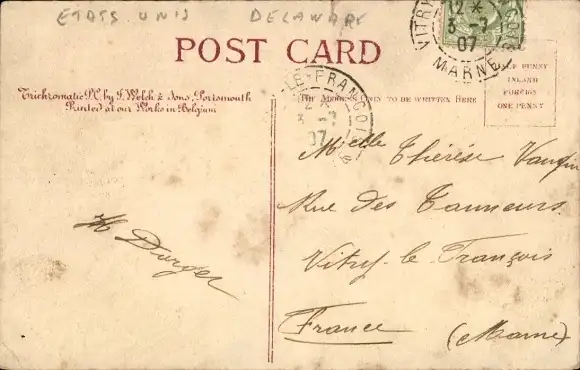 ETATS UNIS DELAWARE
POST CARD
Trichromatic P.C. by F. Welch & Sons, Portsmouth
Printed at our Works in Belgium
THE ADDRESS ONLY TO BE WRITTEN HERE
HALF PENNY
INLAND
FOREIGN
ONE PENNY
VITRY
12 *
3 - 7
07
MARNE
LE-FRANÇOIS
3 - 7
07
Melle Thérèse
Rue des Tanneurs
Vitry-le-François
France
(Marne)